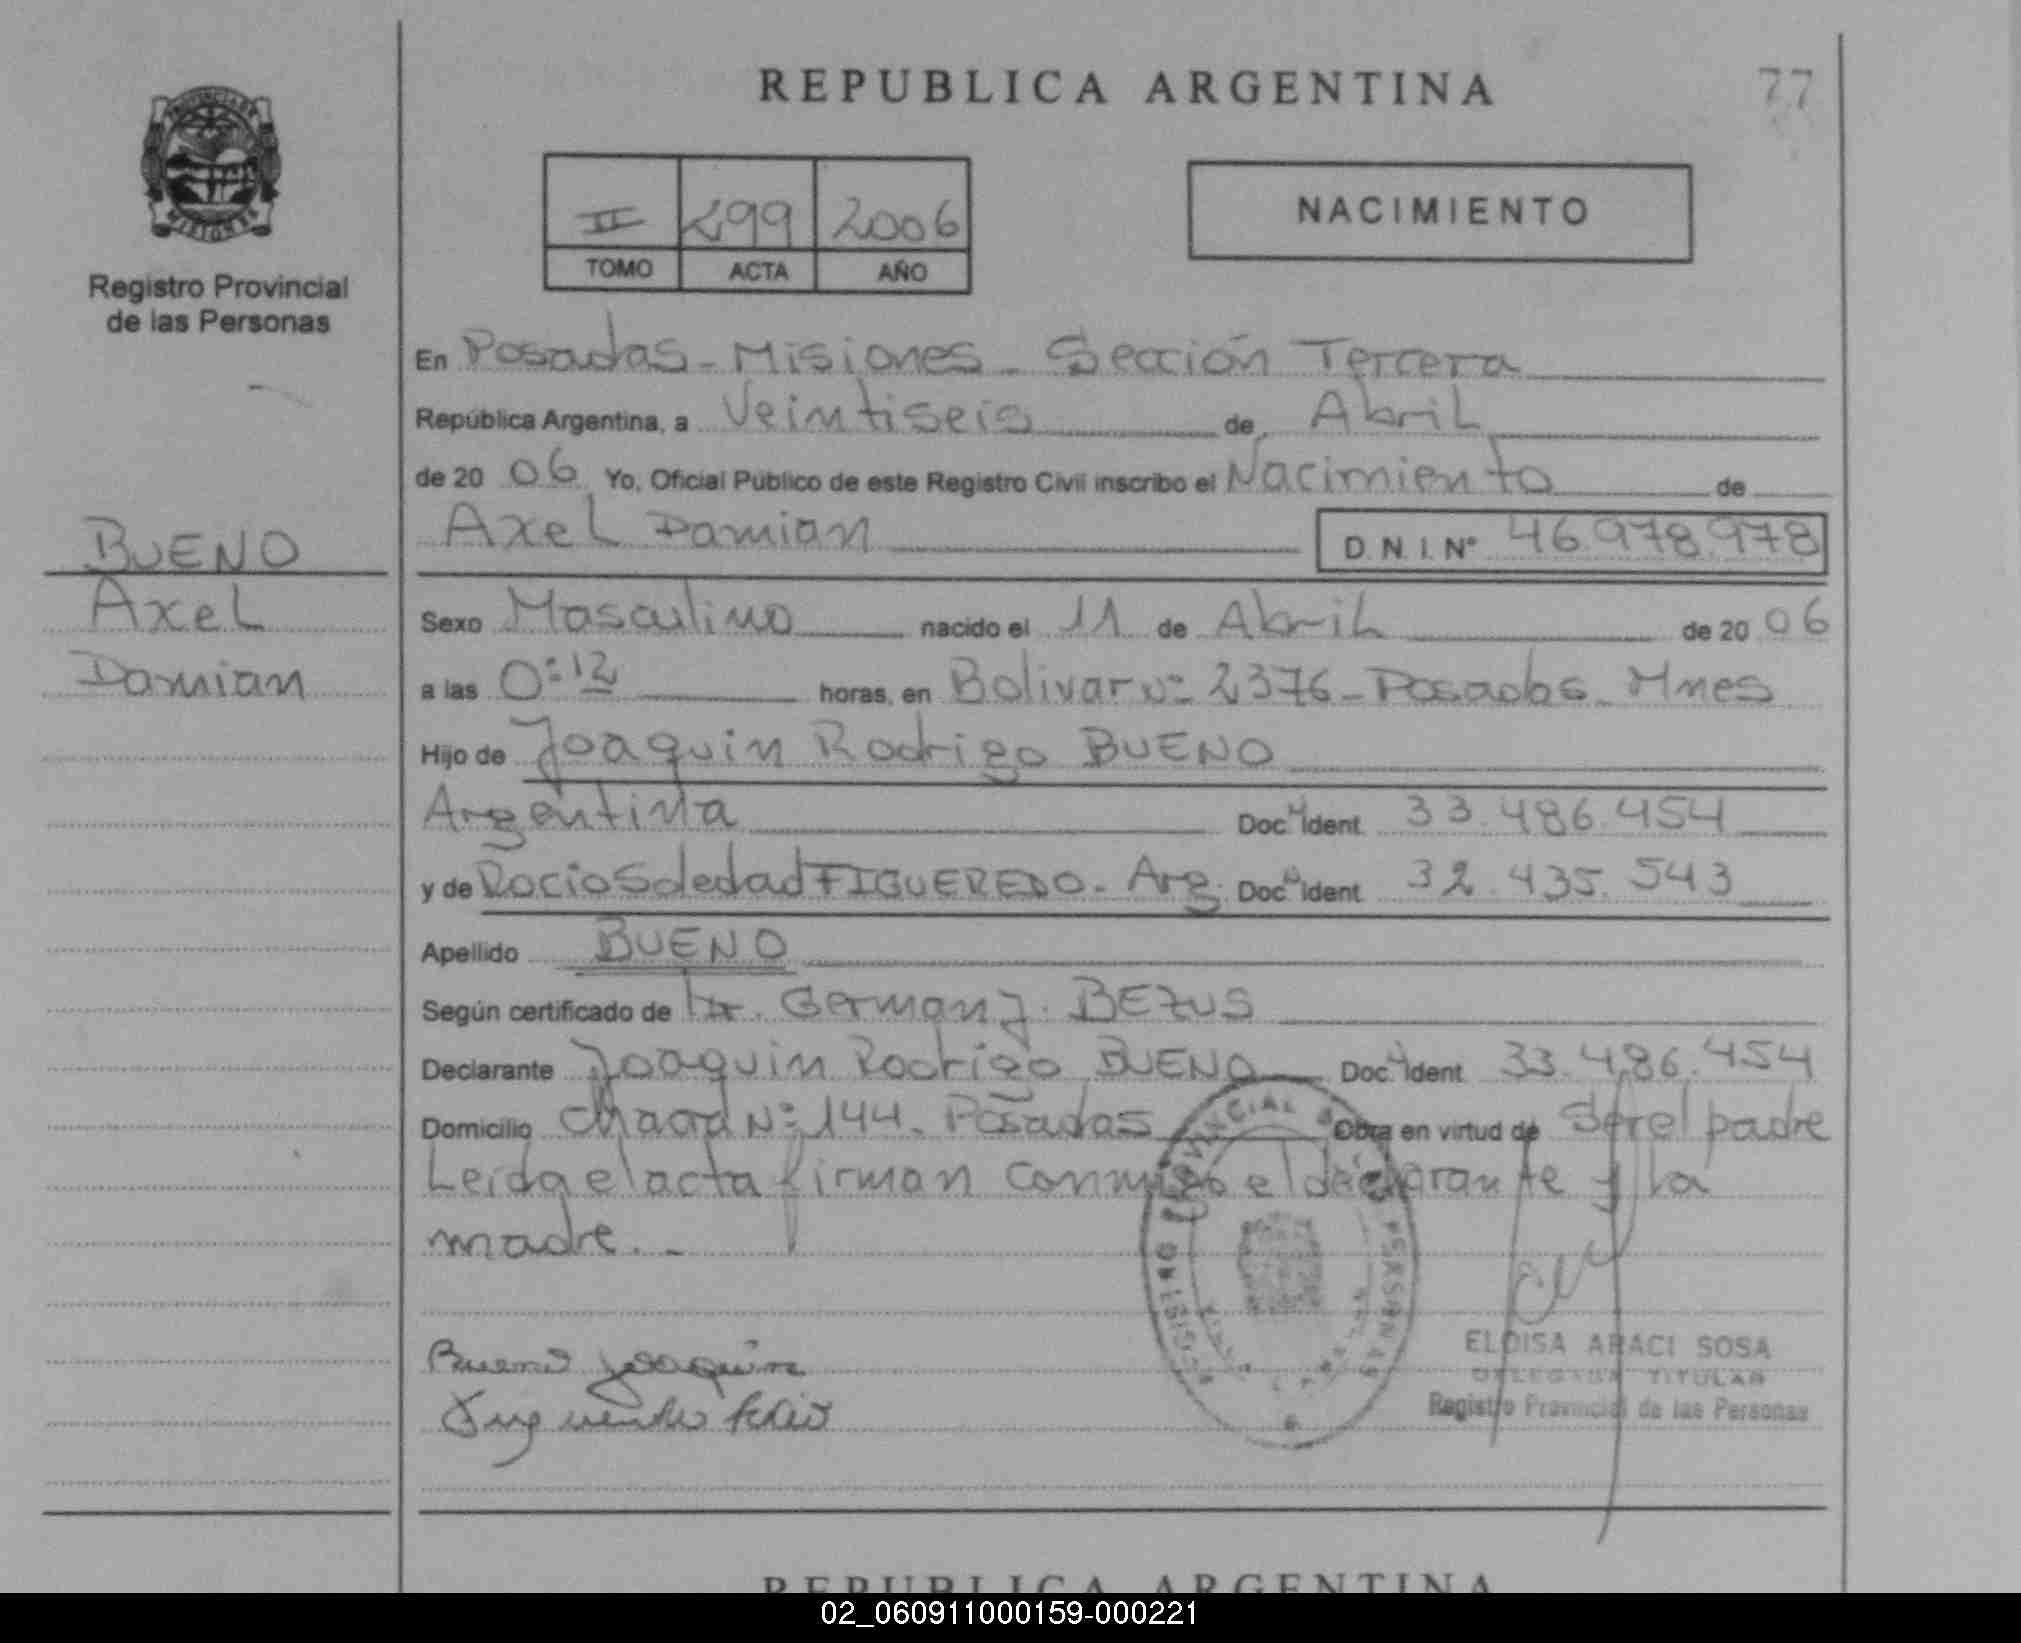 REPUBLICA ARGENTINA
77
Registro Provincial
de las Personas
II 299 2006
TOMO ACTA AÑO
NACIMIENTO
En Posadas - Misiones - Sección Tercera
República Argentina, a Veintiseis de Abril
de 20 06 Yo, Oficial Público de este Registro Civil inscribo el Nacimiento de
Axel Damian D.N.I. Nº 46.978.978
BUENO
Axel
Damian
Sexo Masculino nacido el 11 de Abril de 20 06
a las 0:12 horas, en Bolivar Nº 2376 - Posadas - Mnes
Hijo de Joaquin Rodrigo BUENO
Argentina Doc. Ident. 33.486.454
y de Rocio Soledad FIGUEREDO - Arg. Doc. Ident. 32.435.543
Apellido BUENO
Según certificado de Dr. German J. BEZUS
Declarante Joaquin Rodrigo BUENO Doc. Ident. 33.486.454
Domicilio Chacra Nº 144 - Posadas Obra en virtud de Ser el padre
Leida el acta firman conmigo el declarante y la
madre. -
Bueno Joaquin
ELOISA ARACI SOSA
DELEGADA TITULAR
Registro Provincial de las Personas
REGISTRO PROVINCIAL DE LAS PERSONAS
REPUBLICA ARGENTINA
02_060911000159-000221